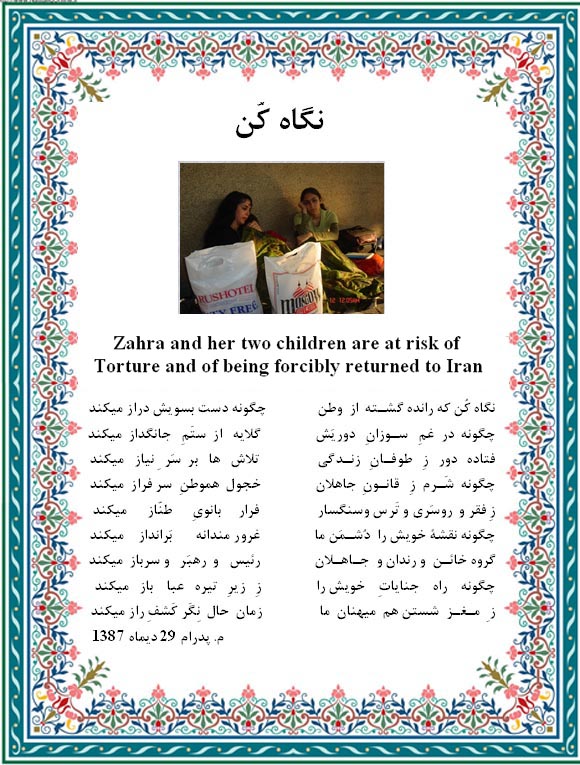 نگاه کُن
RUSHOTEL
TY FREE
Zahra and her two children are at risk of
Torture and of being forcibly returned to Iran
نگاه کُن که رانده گشته از وطن چگونه دست بسویش دراز میکند
چگونه در غمِ سوزانِ دوریَش گلایه از ستَمِ جانگداز میکند
فتاده دور زِ طوفانِ زندگی تلاش ها بر سَرِ نیاز میکند
چگونه شَرم زِ قانونِ جاهلان خجول هموطنِ سرفراز میکند
زِ فقر و روسَری و تَرس وسنگسار فرار بانویِ طنّاز میکند
چگونه نقشهٔ خویش را دُشمَن ما غرور مندانه بَرانداز میکند
گروه خائن و رندان و جاهلان رئیس و رهبَر و سرباز میکند
چگونه راه جنایاتِ خویش را زِ زیرِ تیره عبا باز میکند
زِ مغز شستن هم میهنان ما زمان حال نِگَر کَشفِ راز میکند
م. پدرام 29 دیماه 1387